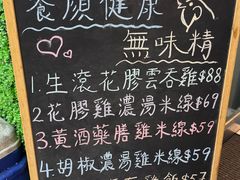 食原健康
無味精
1.生滾花膠雲吞雞$88
2.花膠雞濃湯米線$69
3.黃酒藥膳雞米線$59
4.胡椒濃湯雞米線$59